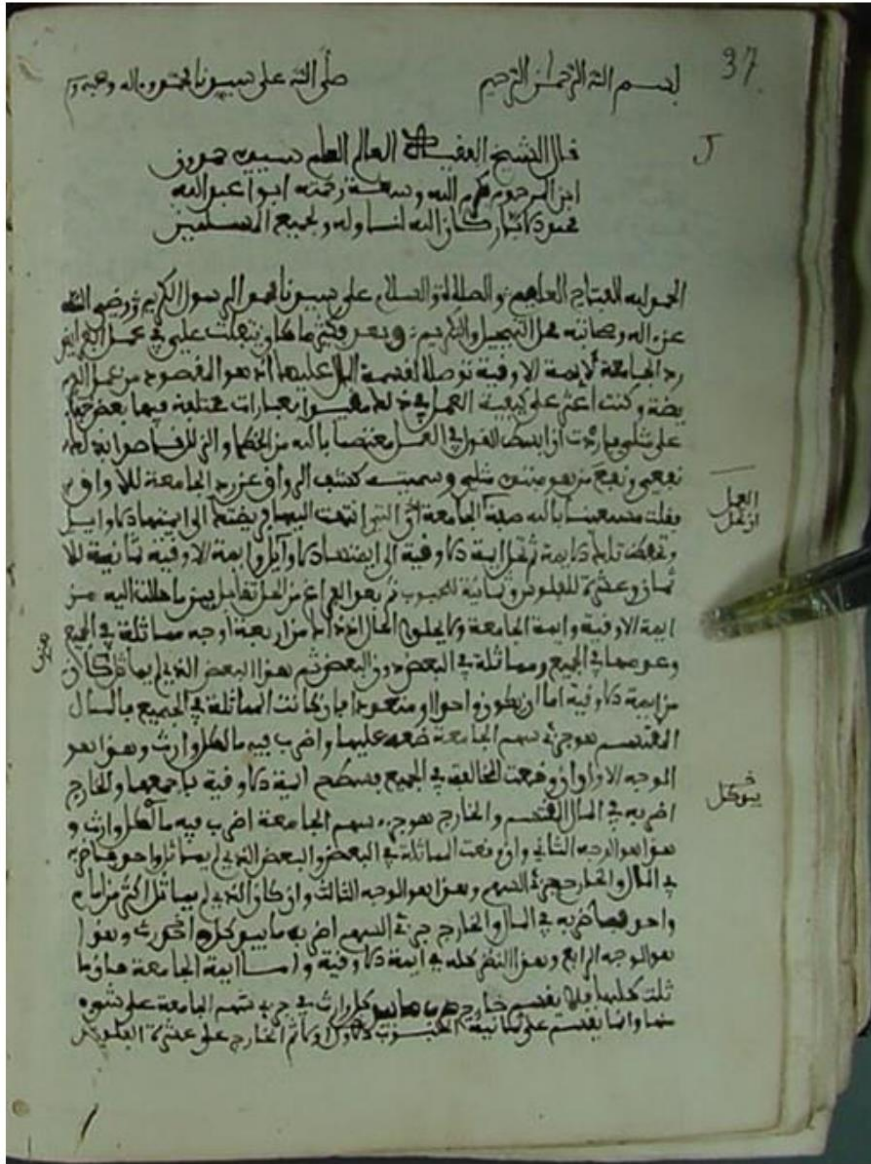 37
بسم الله الرحمان الرحيم صلى الله على سيدنا محمد وءاله وصحبه وسلم
قال الشيخ الفقيه العالم العلم سيدي حمودة
ابن المرحوم بكرم الله وسعة رحمته ابو عبد الله
محمد كان الله لنا وله ولجميع المسلمين
الحمد لله الفتاح العليم والصلاة والسلام على سيدنا محمد الرسول الكريم ورضي الله
عن ءاله وصحابته محل التبجيل والتكريم وبعد في عمل
رد الجامعة لايمة الاوقية توصلا لقسمة المال عليها اذ هو المقصود من عمل الفر
يضة وكنت اعثر على كيفية العمل في ذلك بعبارات مختلفة فيها بعض خفاء
على مثلي فاردت ان ابسط القول في العمل معتصما بالله من الخطا والزلل قاصدا بذلك
نفعي ونفع من هو مثلي وسميته كشف الرواق عن رد الجامعة للاواق
فقلت مستعينا بالله صفة الجامعة التي انتهت اليها الى ايمتها الاوايل
وتحفظ تلك الايمة ثم تحل ايمة الاوقية الى ايمتها الاوايل وايمة الاوقية ثمانية للا
ثمان وعشرة للفلوس وثمانية للحبوب ثم بعد الفراغ من الحل تقابل بين ما حللته اليه من
ايمة الاوقية وايمة الجامعة ولا يخلو الحال اذ ذاك من اربعة اوجه مماثلة في الجميع
وعدمها في الجميع ومماثلة في البعض دون البعض ثم هذا البعض الذي لم يماثل كان
من ايمة الاوقية اما ان يكون واحدا او متعددا فان كانت المماثلة في الجميع فالمال
المقتسم هو جزء سهم الجامعة ضعه عليها واضرب فيه ما لكل وارث وهذا هو
الوجه الاول وان وقعت المخالفة في الجميع فسطح ايمة الاوقية باجمعها والخارج
اضربه في المال المقتسم والخارج هو جزء سهم الجامعة اضرب فيه ما لكل وارث و
هذا هو الوجه الثاني وان وقعت المماثلة في البعض والبعض الذي لم يماثل واحد فاضربه
في المال والخارج جزء السهم وهذا هو الوجه الثالث وان كان الذي لم يماثل اكثر من امام
واحد فاضربه في المال والخارج جزء السهم اضرب ما بيد كل وارث وهذا
هو الوجه الرابع وهذا النظر كله في ايمة الاوقية واما ايمة الجامعة فان ما
ثلت كلها فلا يقسم خارج ضرب ما بيد كل وارث في جزء سهم الجامعة على شيء
منها وانما يقسم على ثمانية الحبوب الاول ثم الخارج على عشرة الفلوس
العمل
ان تحل
بيد كل